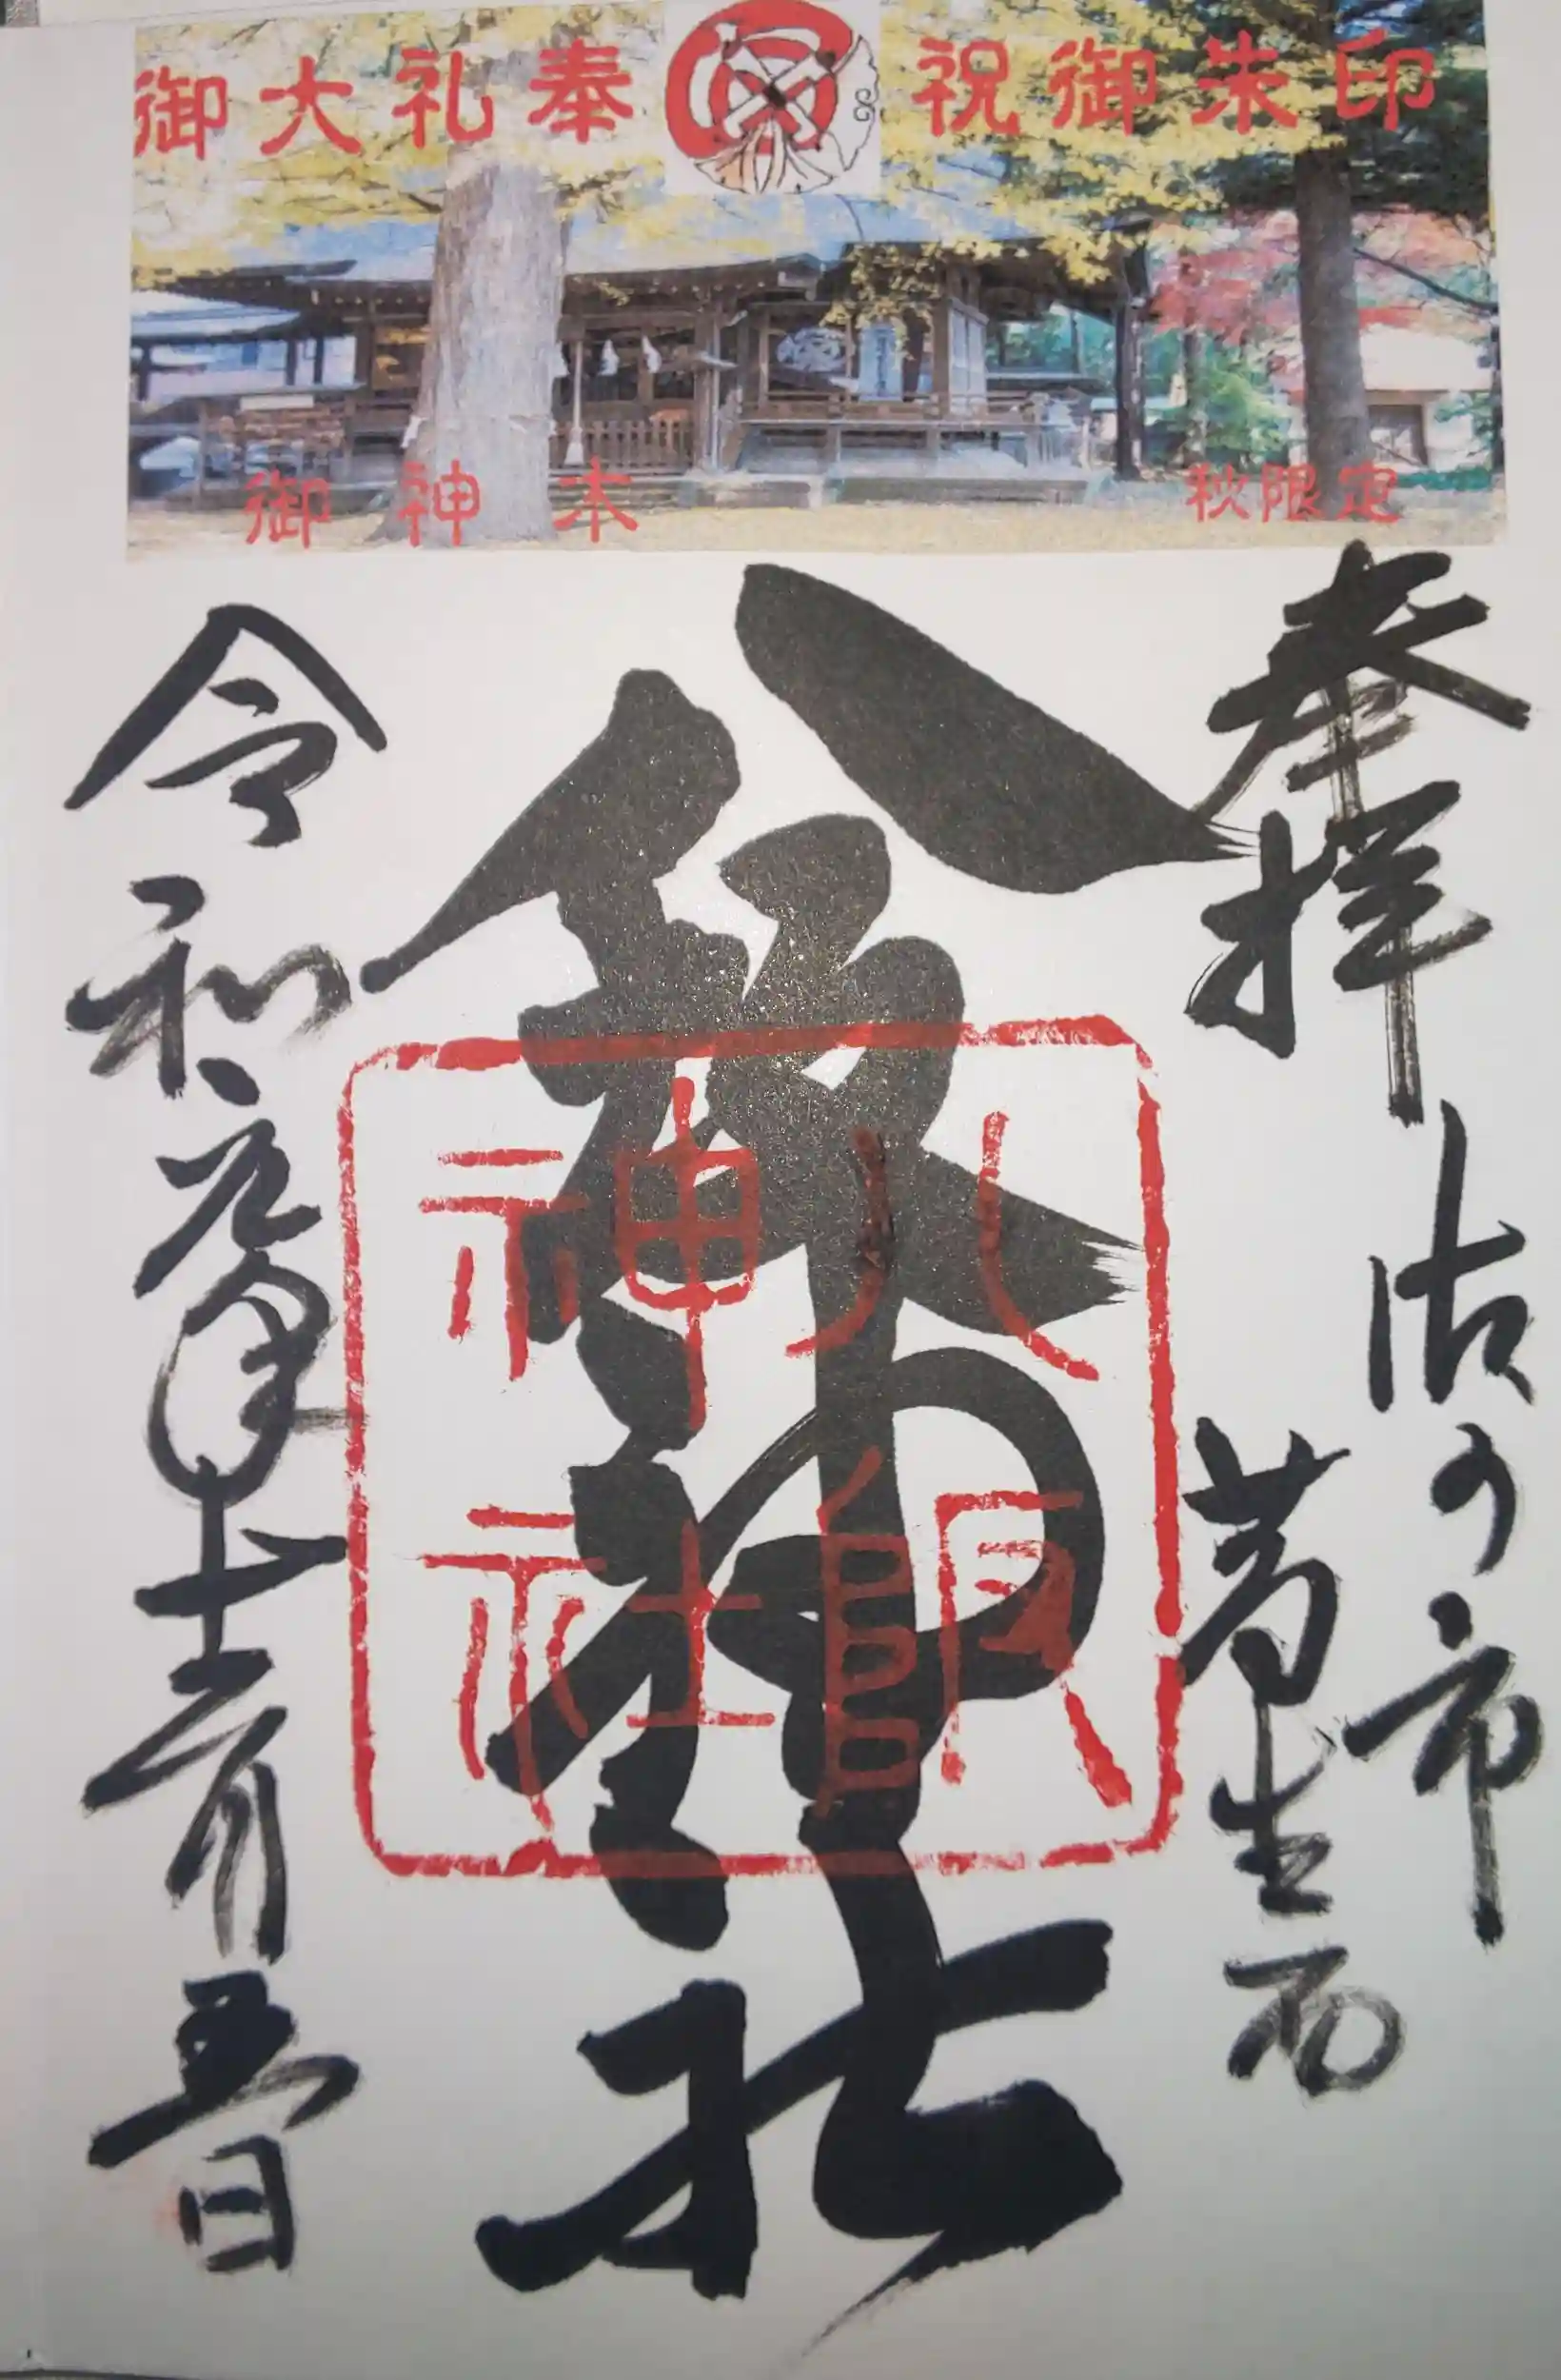 御大礼奉祝御朱印
御神木
秋限定
奉拝
佐の市
葛生西
八坂神社
八阪
神社
令和元年十一月 日